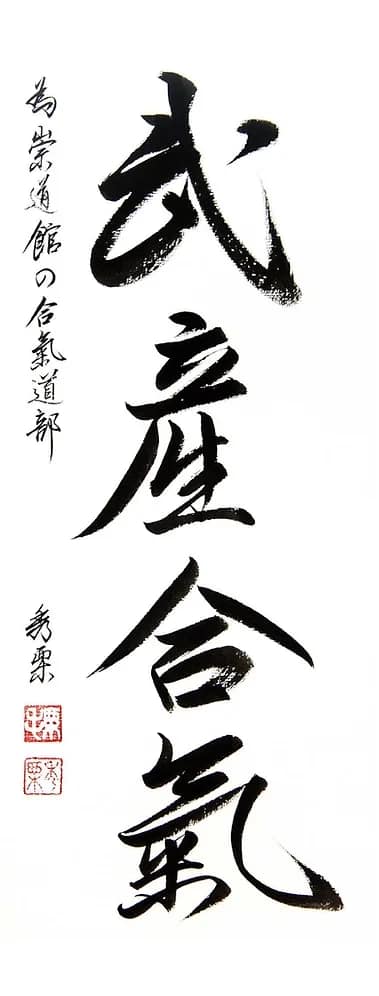 武産合氣
為崇道館の合氣道部
秀栗